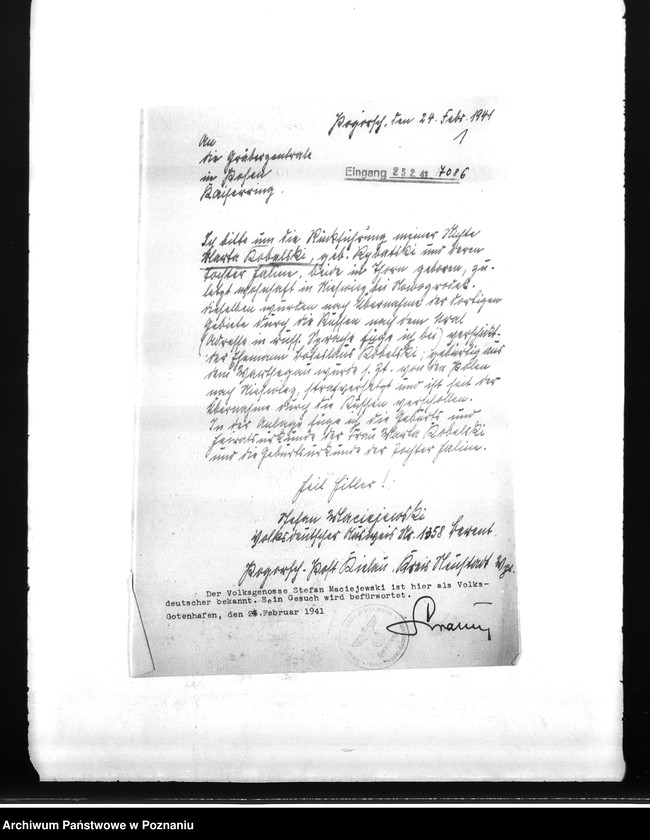 Pogorsch, den 24. Febr. 1941
An
die Gräberzentrale
in Posen
Kaiserring.
Eingang 25 2 41 /7086
Ich bitte um die Rückführung meiner Nichte
Marta Kobalski, geb. Rybatski und deren
Tochter Haline, beide in Thorn geboren, zu-
letzt wohnhaft in Nieswiez bei Nowogrodek.
Dieselben wurden nach Übernahme der dortigen
Gebiete durch die Russen nach dem Ural
(Adresse in russ. Sprache füge ich bei) verschickt.
Der Ehemann Boleslaus Kobalski, gebürtig aus
dem Warthegau wurde s. Zt. von den Polen
nach Nieswiez, strafversetzt und ist seit der
Übernahme durch die Russen verschollen.
In der Anlage füge ich die Geburts und
Heiratsurkunde der Frau Marta Kobalski
und die Geburtsurkunde der Tochter Haline.
Heil Hitler!
Stefan Maciejewski
Volksdeutscher Ausweis Nr. 1358 Berent.
Pogorsch. Post Kielau. Kreis Neustadt Wpr.
Der Volksgenosse Stefan Maciejewski ist hier als Volks-
deutscher bekannt. Sein Gesuch wird befürwortet.
Gotenhafen, den 24.Februar 1941
Archiwum Państwowe w Poznaniu